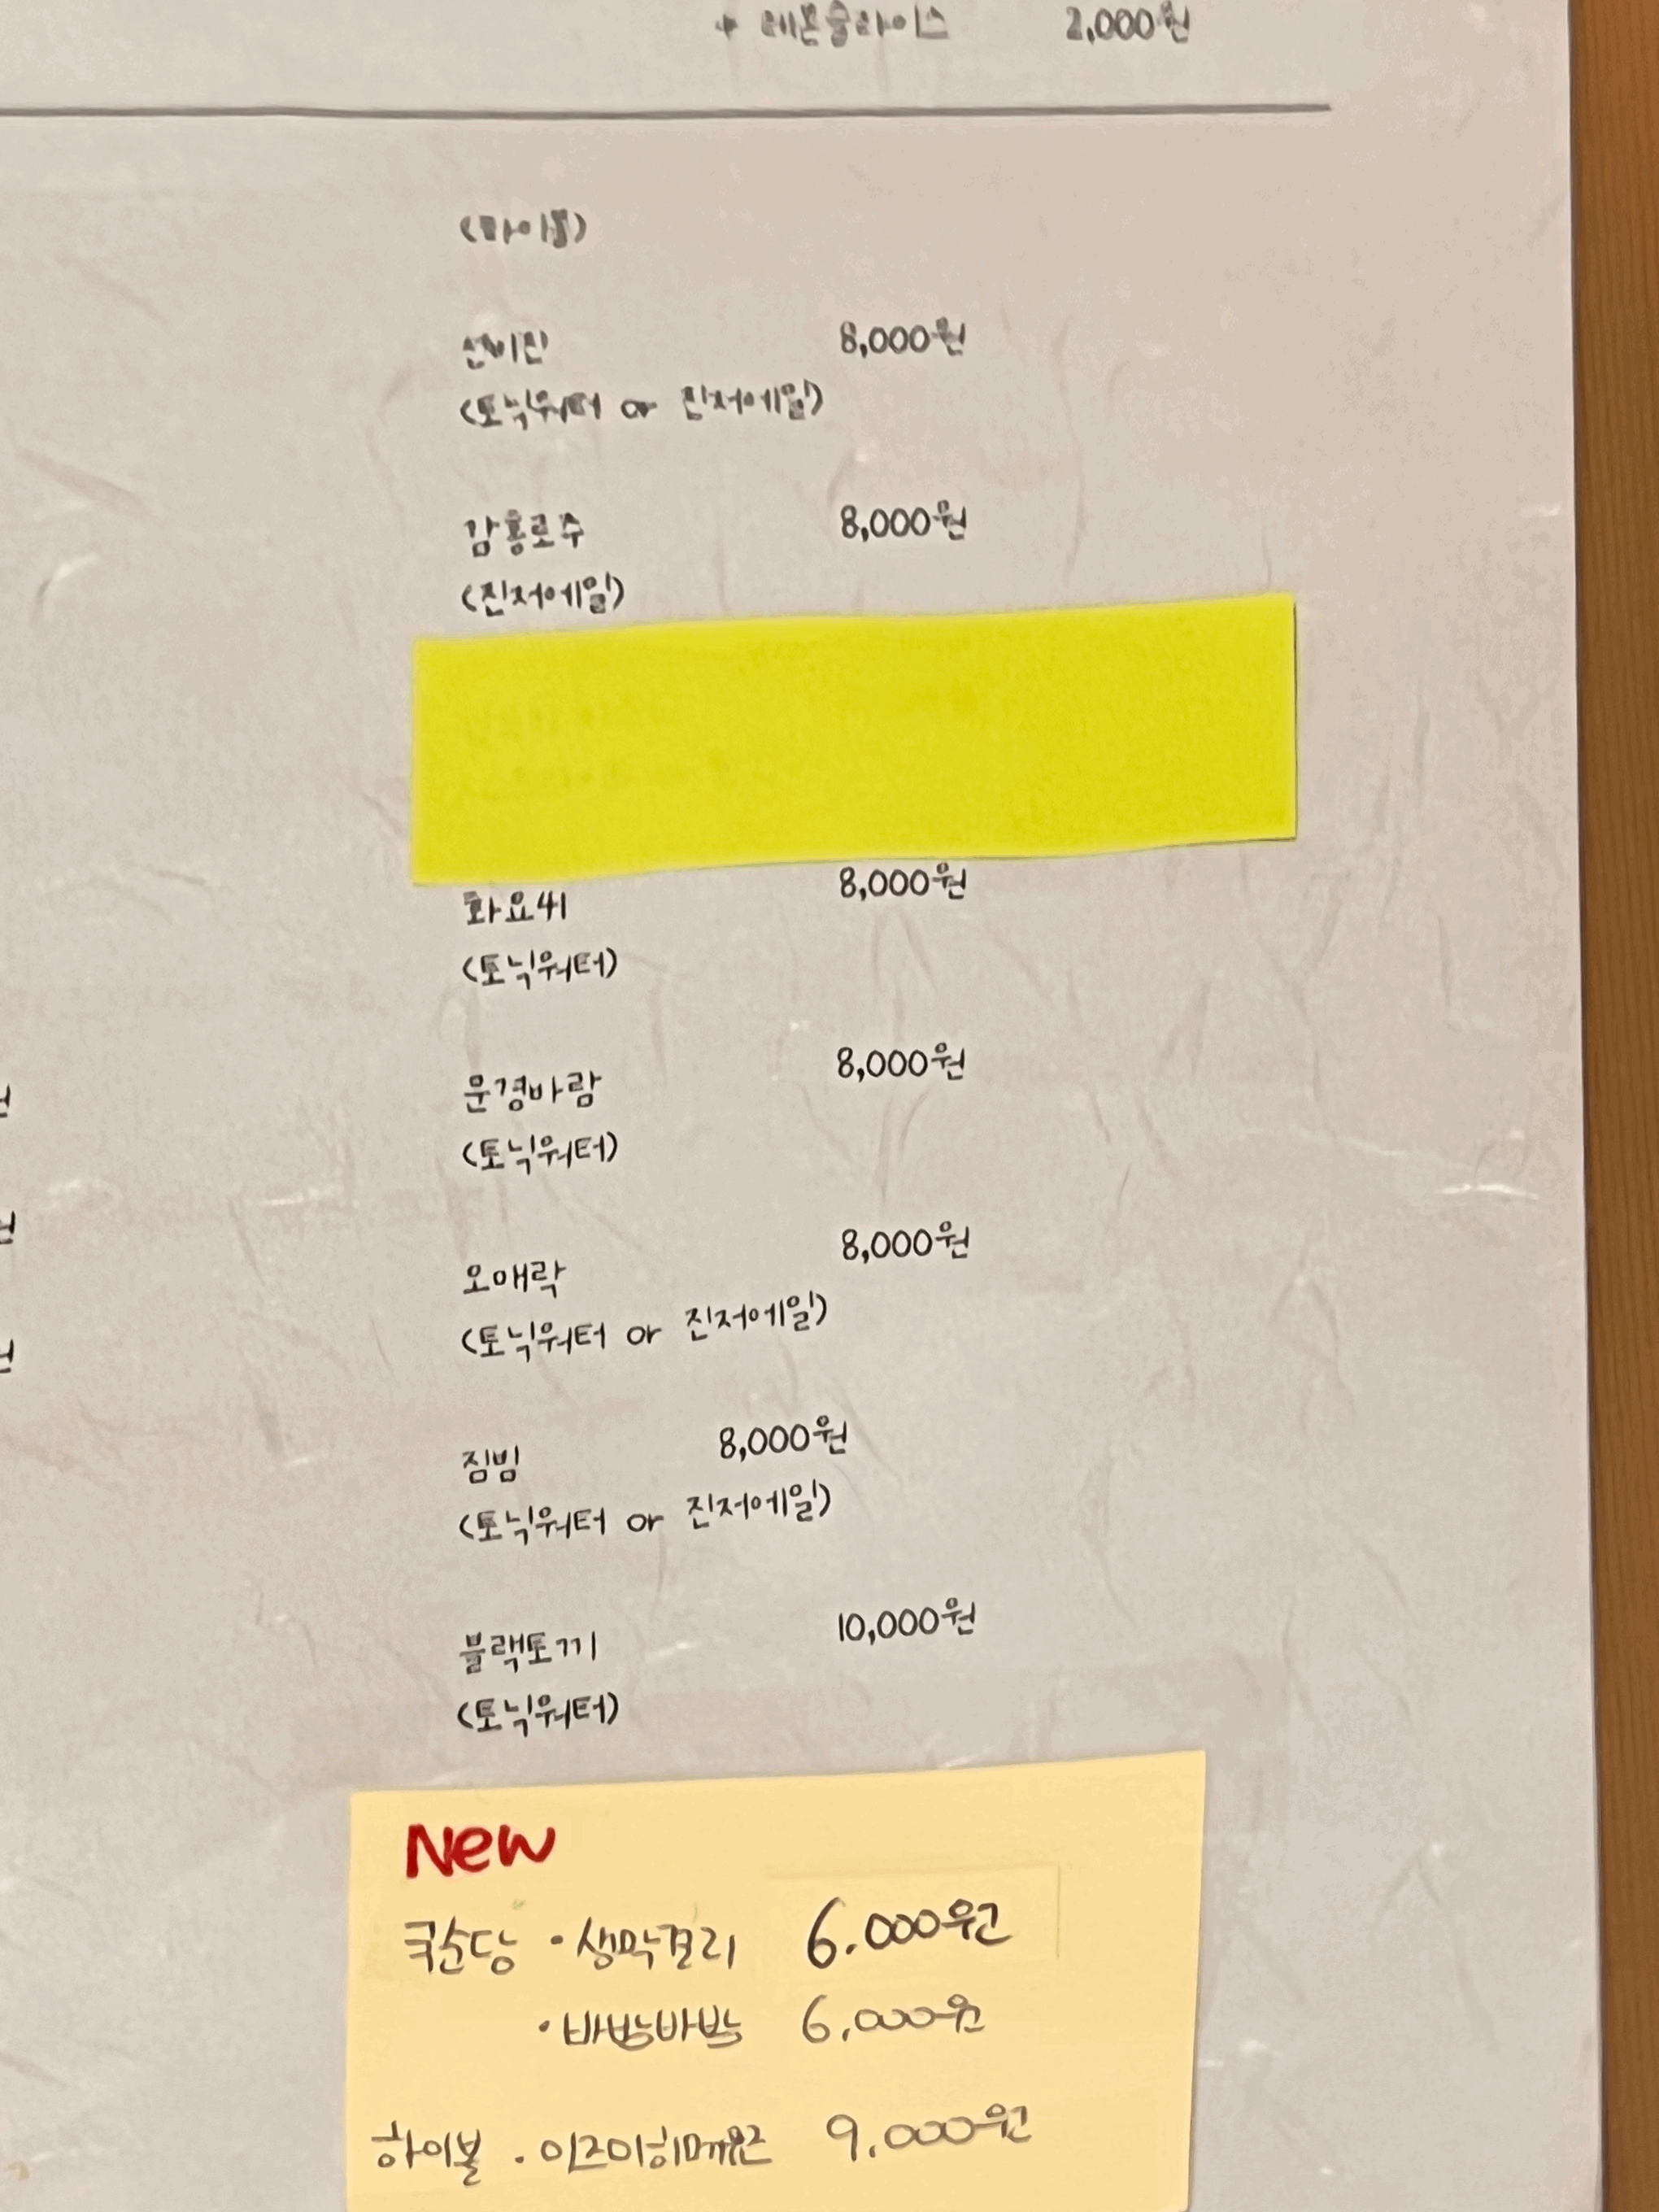 + 레몬슬라이스 2,000원
(하이볼)
선비진 8,000원
(토닉워터 or 진저에일)
감홍로주 8,000원
(진저에일)
화요41 8,000원
(토닉워터)
문경바람 8,000원
(토닉워터)
오매락 8,000원
(토닉워터 or 진저에일)
짐빔 8,000원
(토닉워터 or 진저에일)
블랙토끼 10,000원
(토닉워터)
New
국순당 · 생막걸리 6.000원
· 바밤바밤 6.000원
하이볼 · 9.000원